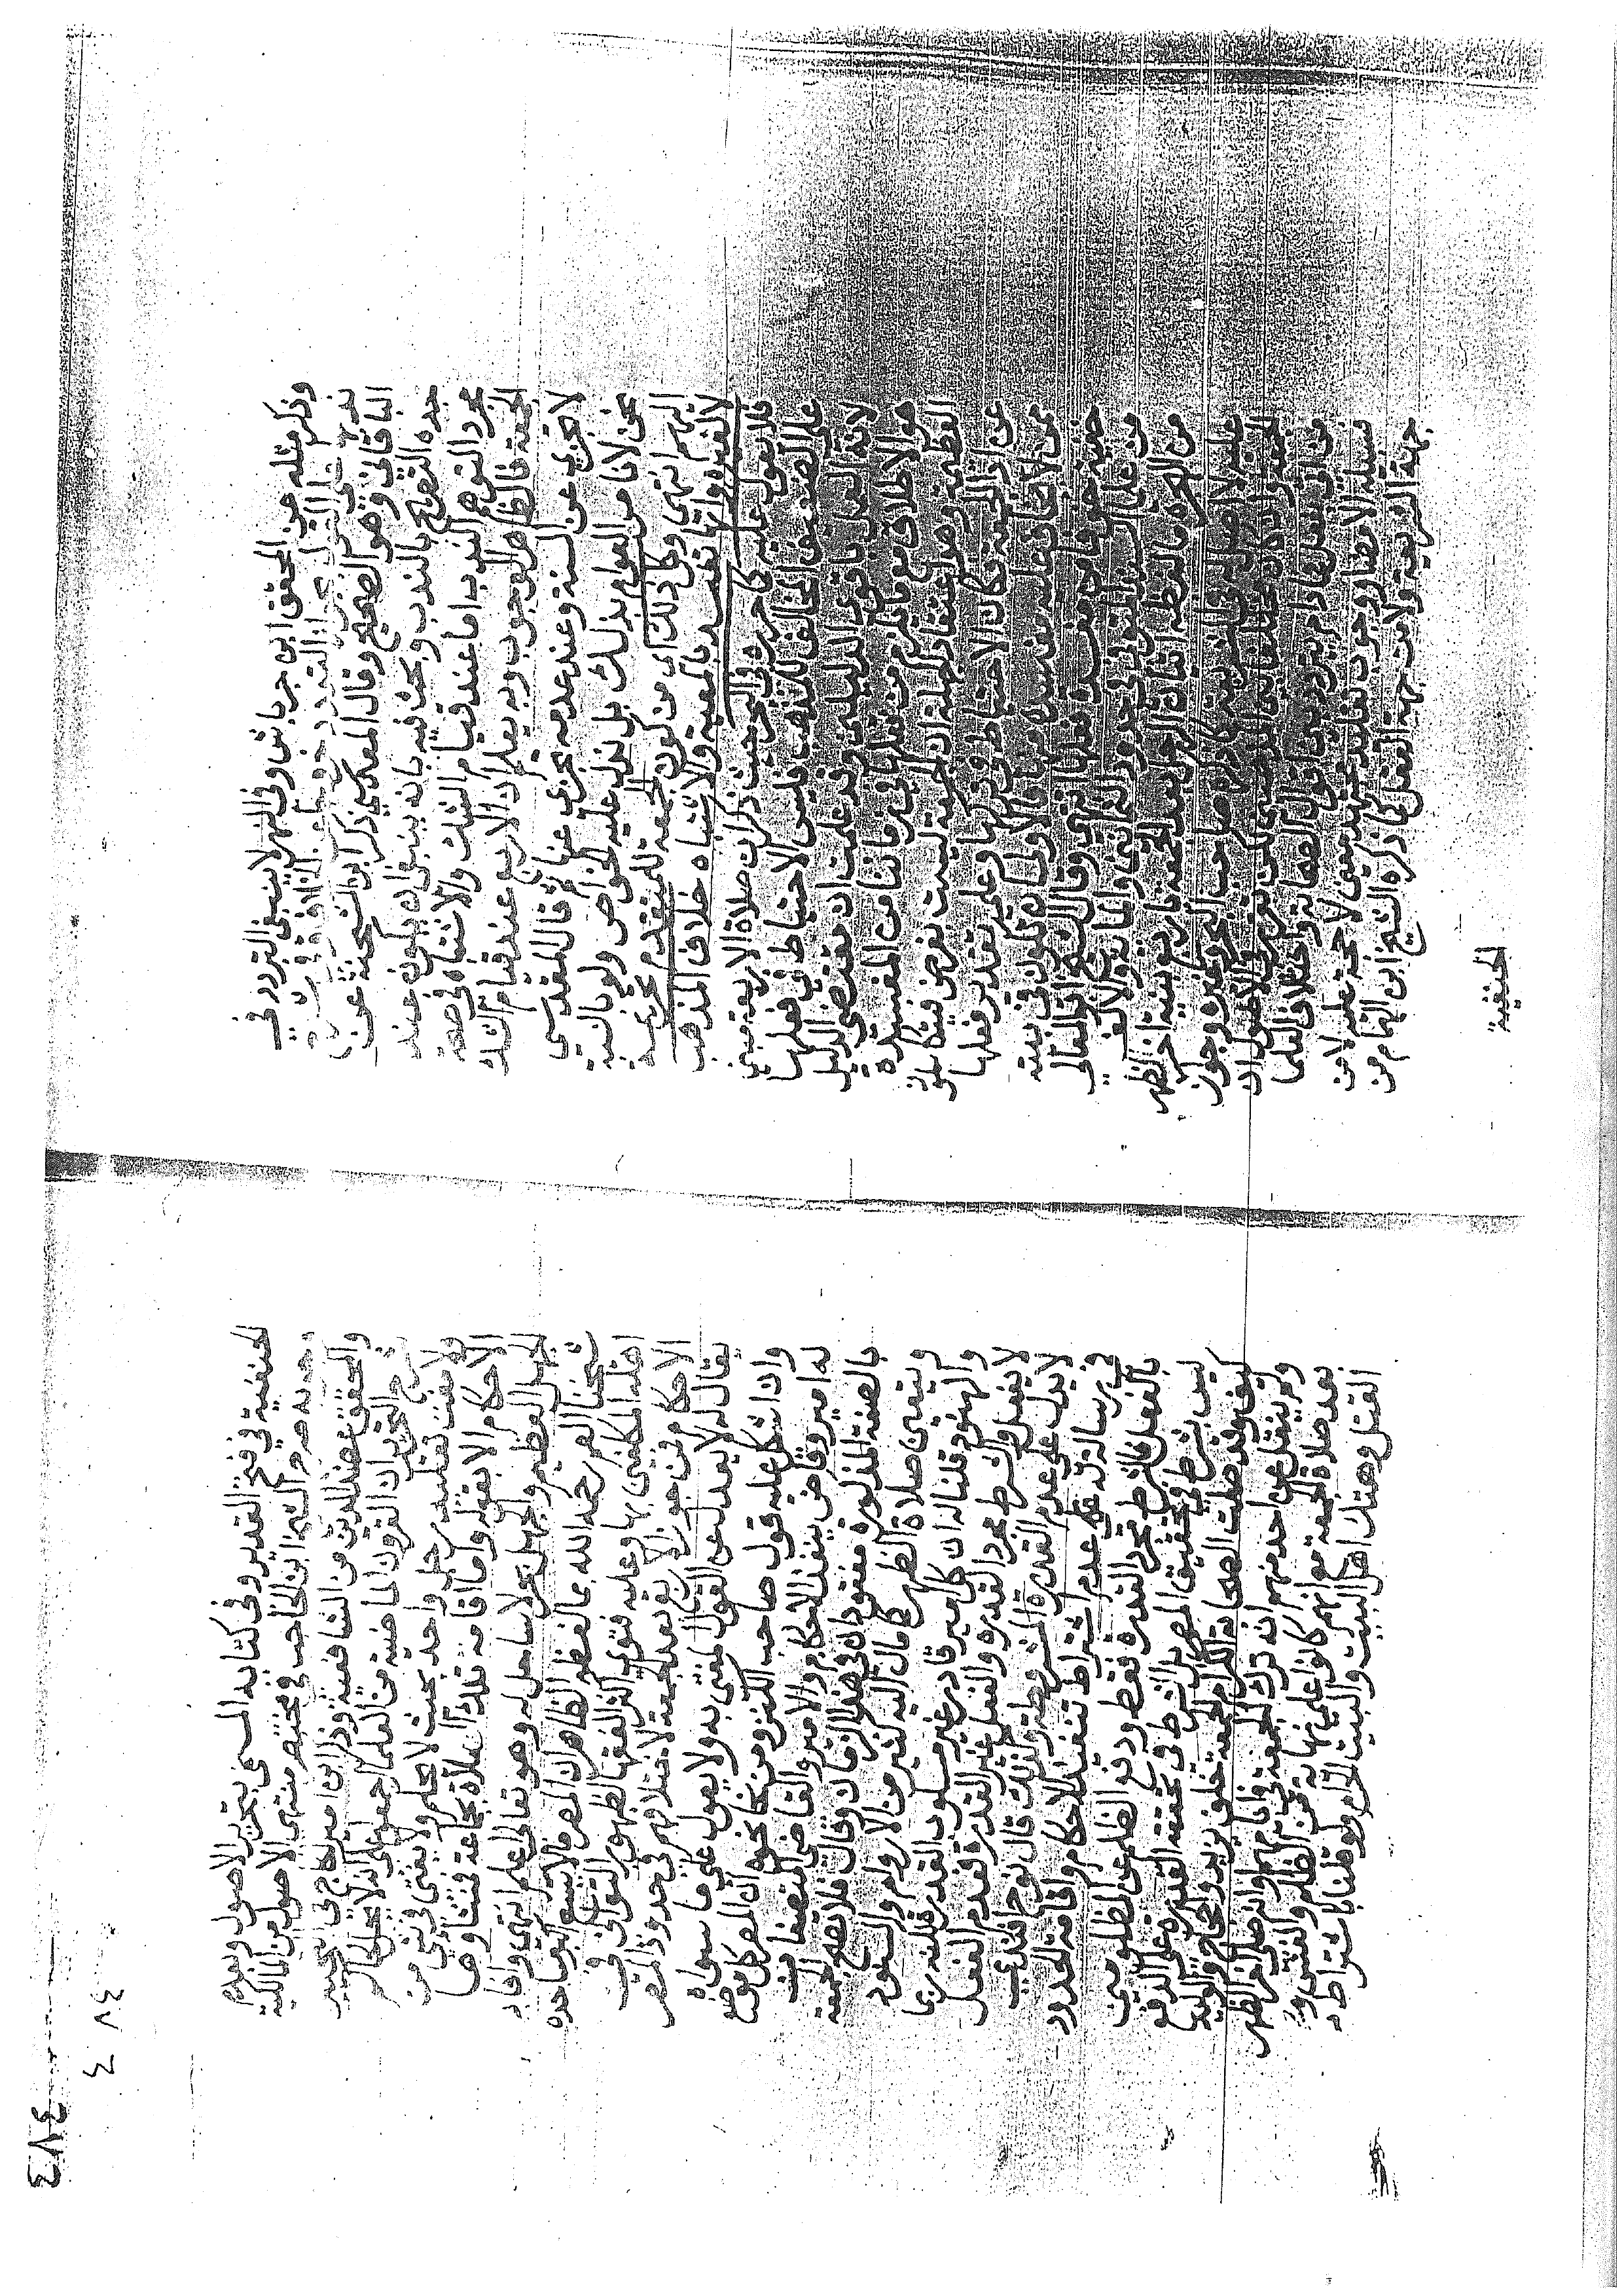 وذكر مثله عن المحقق ابن جرباش وفي النهر لا ينبغي التردد في
الباقاني وهو الصحيح وقال المقدسي ذكر ابن الشحنة عن
جده التصريح بالندب وبحث فيه بانه ينبغي ان يكون عند
مجرد التوهم الندب اما عند قيام الشك والاشتباه في صحة
الجمعة فالظاهر الوجوب وبه يعلم ان الاربع عند قيام الشك
لا تجزي عن السنة وعند عدمه تجزي عنها قال المقدسي
نحن لا نامر العوام بذلك بل ندل عليه الخواص ولو بالنسبة
اليهم انتهى وكان ذلك اي من كون الجمعة للمتقدم تحريمة
لا لغيره وانها تفسد بالمعية والاشتباه خلاف المذهب
فلا يعول عليه كما حرره في البحر حيث ذكر ان صلاة الاربعة مبني
على الضعيف المخالف للمذهب فليس الاحتياط في فعلها
لانه العمل باقوى الدليلين وقد علمت ان مقتضى الدليل
هو الاطلاق مع ما لزم من فعلها في زماننا من المفسدة
العظيمة وهو اعتقاد الجهلة ان الجمعة ليست بفرض فيتكاسلون
عن اداء الجمعة فكان الاحتياط في تركها وعلى تقدير فعلها
ممن لا يخاف عليه مفسدة منها فالاولى ان تكون في بيته
خفية خوفا من مفسدة فعلها انتهى وقال الشيخ ابو المعالي
من علماء السند التوفي في حدود الف اثنى والمائة والالف
من الهجرة ما لفظه اتيان الرجل بعد الجمعة باربع بنية آخر الظهر
عليه لا اصل له في الشريعة كما ذكره صاحب البحر وغيره وجوز
الحنفية والمالكية بخلافه انتهى لكن تقرر في الاصول ان
من لم ينقل اذا لم يتردد بين اقوال الصحابة واختلاف العلما
فسئلة الامضاء ووجوب تقليد مجتهد معين لا حجة عليه لا من
جهة الشريعة ولا من جهة العقل كما ذكره الشيخ ابن الهمام من
الحنفية
الحنفية في فتح القدير وفي كتابه المسمى بتحرير الاصول وبعدم
وجوبه صرح الشيخ ابن الحاجب في مختصر منتهى الاصول من المالكية
والمحقق عضد الدين من الشافعية وذكر ابن امير الحاج في التحبير
شرح التحرير ان القرون الماضية من العلما اجمعوا على انه لا يحل لحاكم
ولا مفت تقليد رجل واحد بحيث لا يحكم ولا يفتي في شي من
الاحكام الا بقوله واما اقامة تلك الصلاة بجماعة فنشاؤها
الجهل العظيم والجهل بحر لا ساحل له وهو تعالى اعلم انتهى وافاد
شيخنا العمري رحمه الله بما لفظه الظاهر ان المصر ما لا يسع اكبر مساجده
اهله المكلفين بها وعليه فتوى اكثر الفقها لظهور التواني في
الاحكام فمن جوز الاربع بعد الجمعة لاختلافهم في حدود المصر
يقال له لا يعدل عن القول المفتى به ولا يعول على ما سواه
واذا اشكل عليه قول صاحب الكنز ومن نحا نحوه ان المصر كل موضع
له امير وقاض ينفذ الاحكام والامير والقاضي المتصفان
بالصفة المذكورة مفقودان في هذا الزمان وقال فلا يصح الجمعة
وتتعين صلاة الظهر كما مال اليه كثير من الاروام والسنود
والهنود قلنا له ان كل امير قادر غير مسلوب القدرة لكنه ربما
لا يفعل والشرط مجرد القدرة والفعل غير القدرة فعدم الفعل
لا يدل على عدم القدرة المشروطة ولذلك قال نوح افندي
في رسالة له على عدم اشتراط تنفيذ الاحكام واقامة الحدود
بالفعل فالشرط مجرد القدرة فقط ودفع الظلم عن المظلومين
ليس بشرط في تحقيق المصر بل الشرط في تحققه القدرة على الدفع
كيف وقد صلت الصحابة الكرام الجمعة خلف يزيد والحجاج والوليد
ولم ينقل عن احد منهم انه ترك الجمعة في ايامهم وانه صلى آخر الظهر
بعد صلاة الجمعة مع انهم كانوا على نهاية من الظلم والفسق ومن
القتل وهتك اهل البيت والبيت الحرام ولو قلنا باشتراطه
٤٨٤
٤ ٨٤